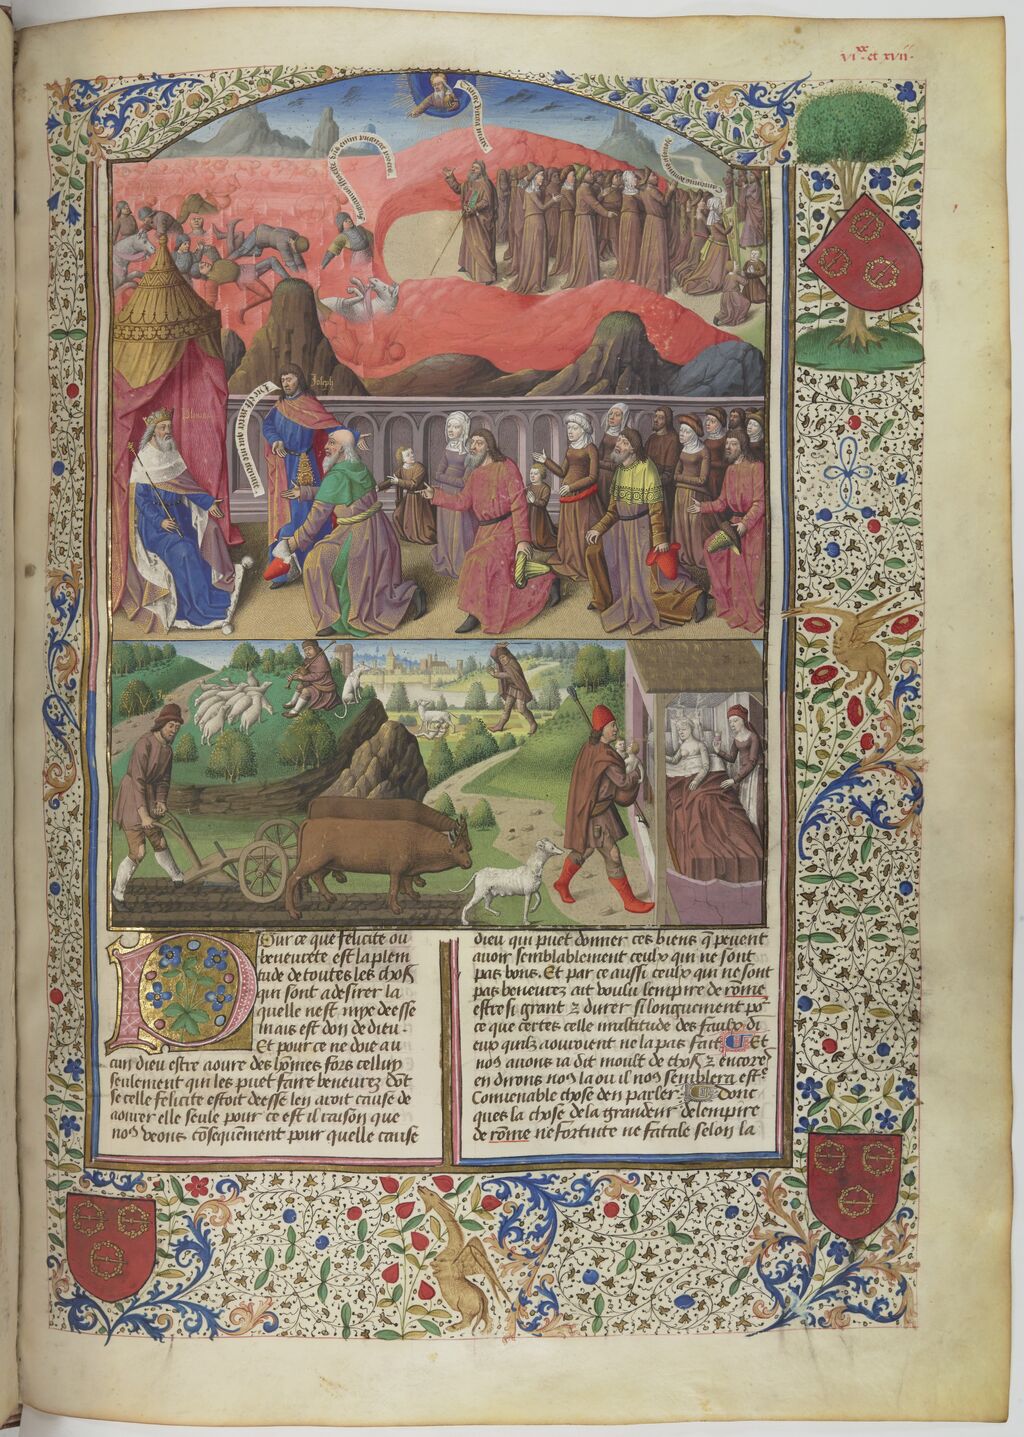 vi.xx et xvii.
Joseph
Pour ce que felicite ou
beneurete est la plein
tude de toutes les chos
qui sont a desirer la
quelle nest mye deesse
mais est don de dieu.
Et pour ce ne doie au
cun dieu estre aoure des hom̃es fors cellui
seulement qui les puet faire beneurez dõt
se celle felicite estoit deesse len aroit cause de
aourer elle seule pour ce est il raison que
noꝰ veons cõsequẽment pour quelle cause
dieu qui puet donner ces biens q̃ peuent
auoir semblablement ceulx qui ne sont
pas bons. Et par ce aussi ceulx qui ne sont
pas beneurez ait voulu lempire de rõme
estre si grant ⁊ durer si longuement poʳ
ce que certes celle multitude des faulx di
eux quilz aouroient ne la pas fait Et
noꝰ auons ia dit moult de chos ⁊ encores
en dirons noꝰ la ou il noꝰ semblera estꝰ
Conuenable chose den parler. Donc
ques la chose de la grandeur de lempire
de rõme ne fortuite ne fatale selon la